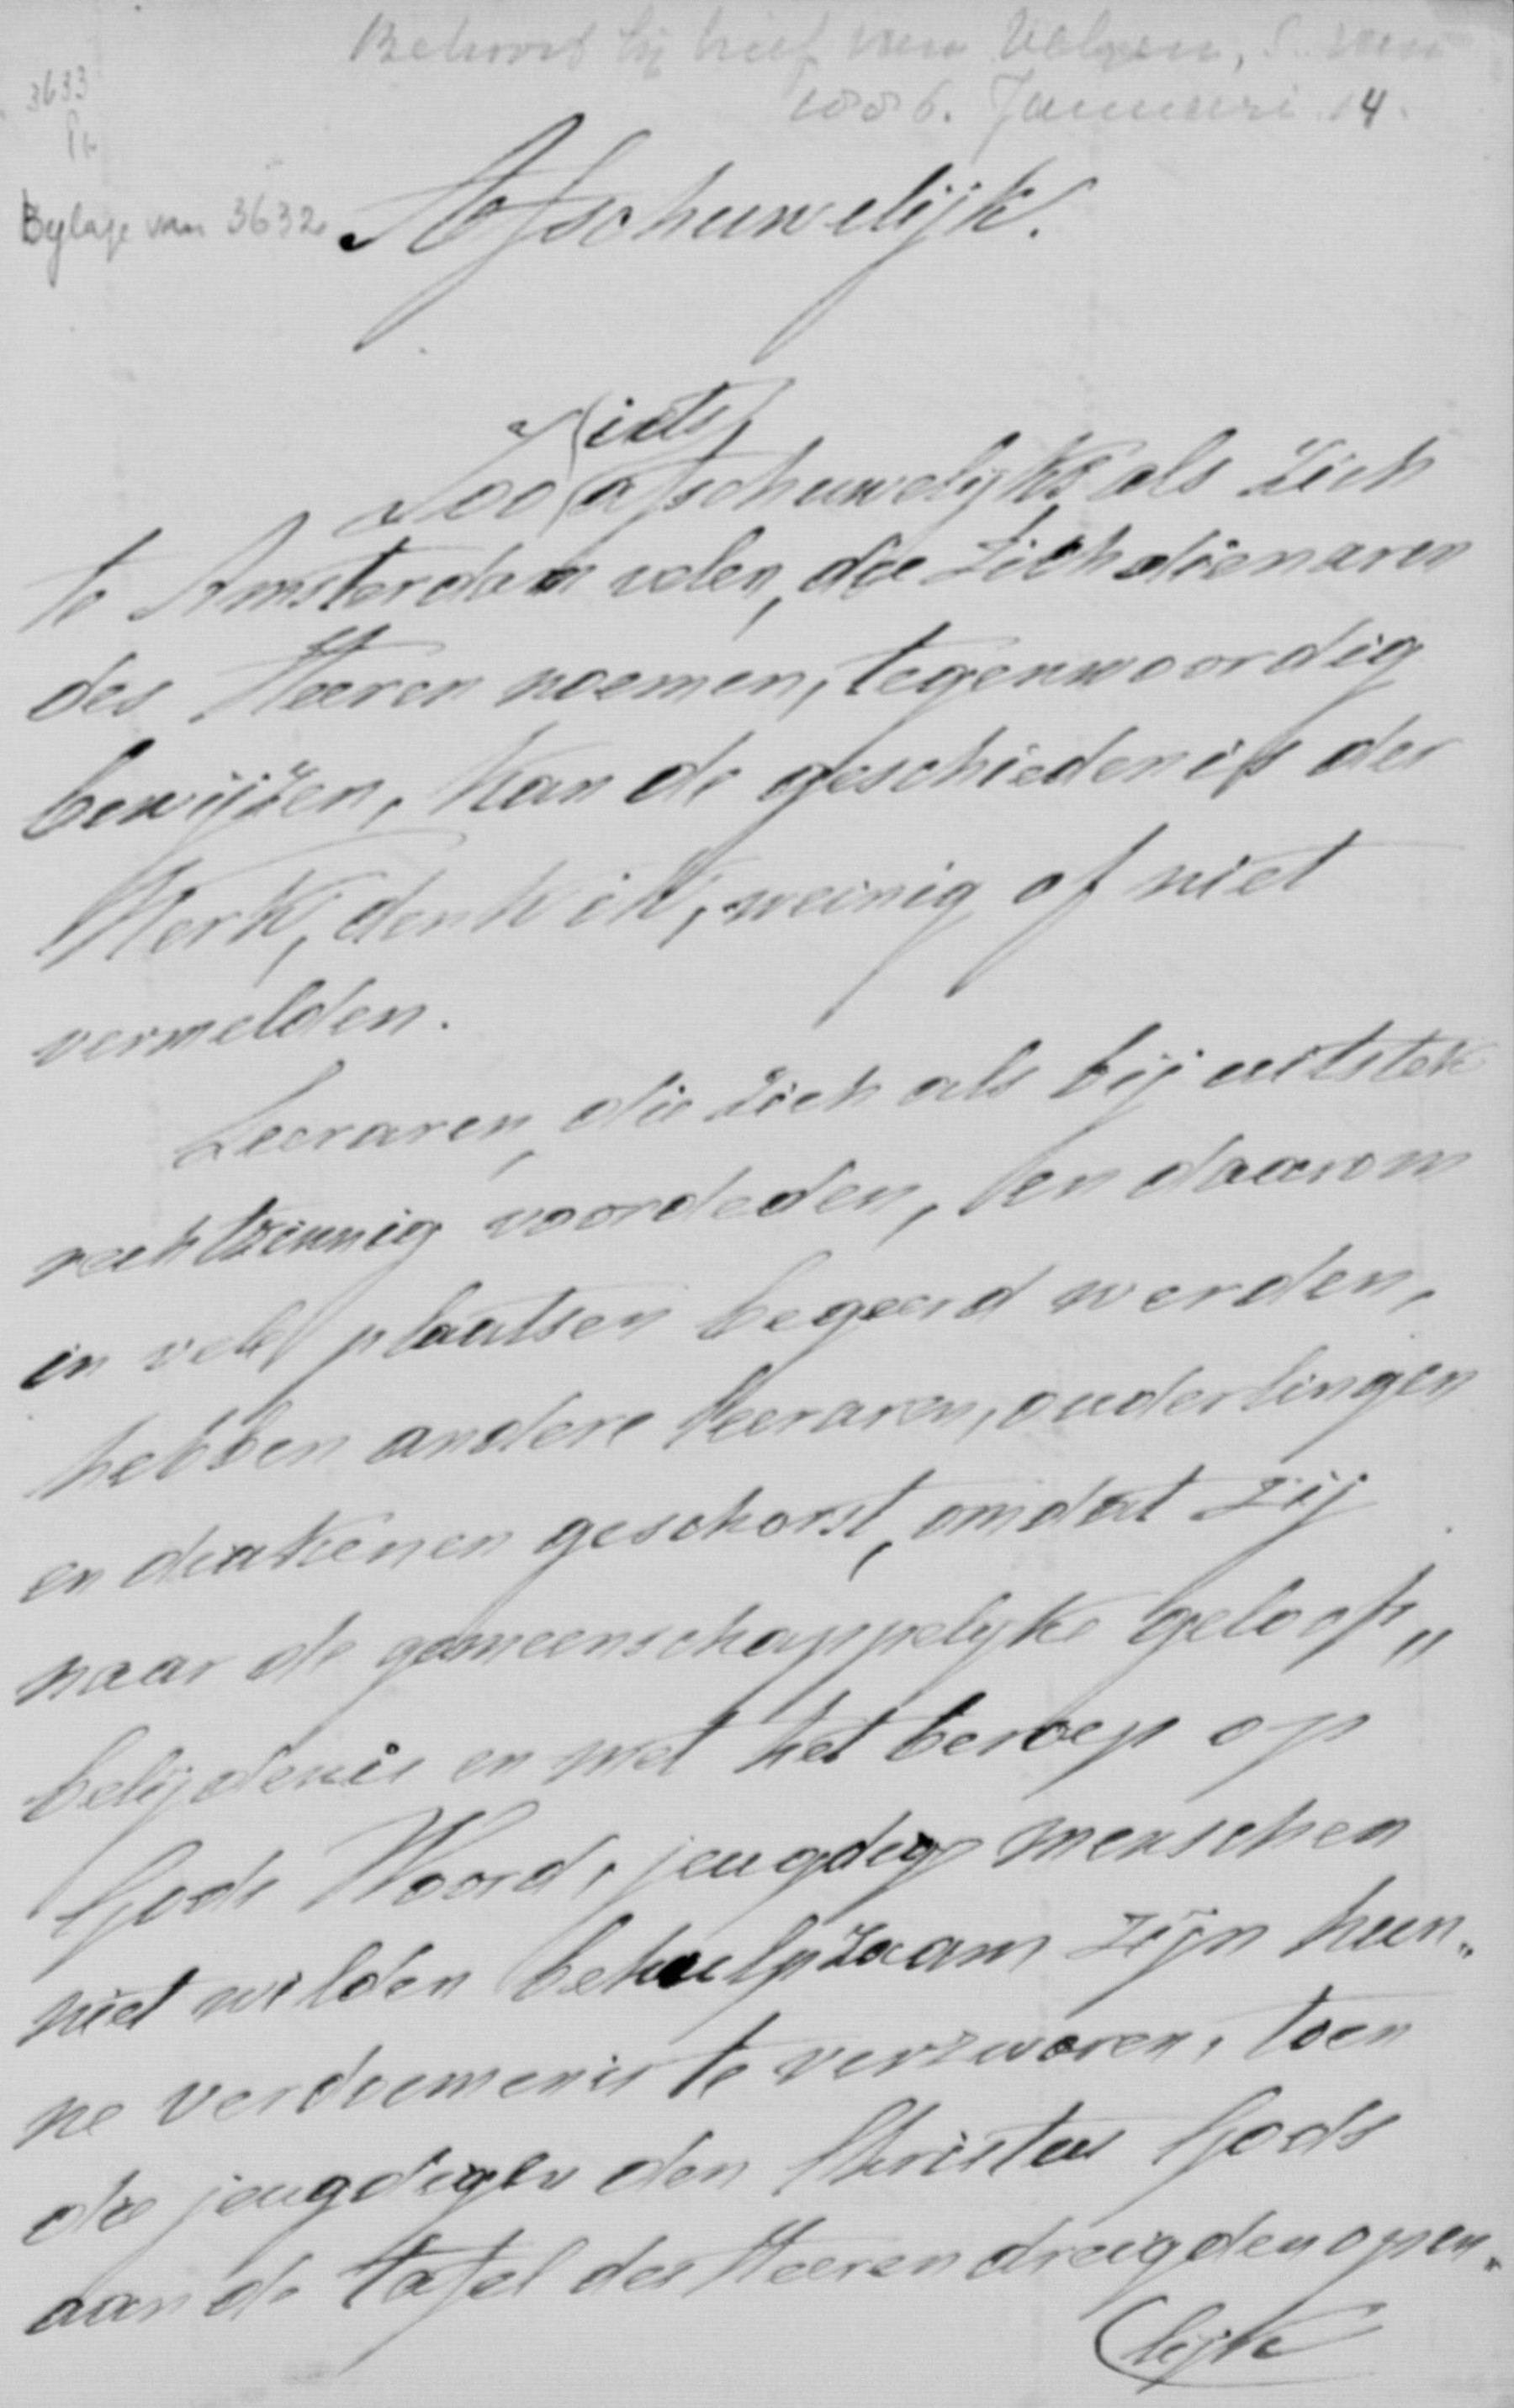 Behoort bij brief van Velzen, S. van
1886. Januari 14.
3633
Pr
Bylage van 3632
Afschuwelijk.
iets
Zoo afschuwelyks als zich
te Amsterdam velen, die zich dienaren
des Heeren noemen, tegenwoordig
bewijzen, kan de geschiedenis der
Kerk, denk ik, weinig of niet
vermelden.
Leeraren, die zich als bij uitstek
rechtzinnig voordeden, en daarom
in vele plaatsen begeerd werden,
hebben andere leeraren, ouderlingen
en diakenen geschorst, omdat zij
naar de gemeenschappelyke geloofs„
belijdenis en met het beroep op
Gods Woord, jeugdige menschen
niet wilden behulpzaam zijn hun„
ne verdoemenis te verzwaren, toen
die jeugdigen den Christus Gods
aan de tafel des Heeren dreigden open„
lijk